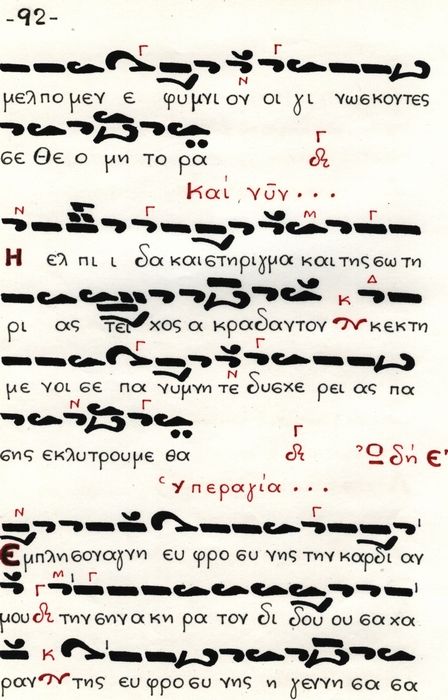 -92-
μελπομεν ε φυμνιον οι γι νωσκοντες
σε Θε ο μη το ρα
Καί νῦν...
Η ελ πι ι δα και στηριγμα και της σω τη
ρι ας τει χος α κραδαντον κεκτη
με νοι σε πα νυμνητε δυσχε ρει ας πα
σης εκλυτρουμε θα
Ὠδή ε'
Ὑπεραγία...
Εμπλησοναγνη ευ φρο συ νης την καρδι αν
μου την σην α κη ρα τον δι δου ου σα χα
ραν της ευ φρο συ νης η γεννη σα σα